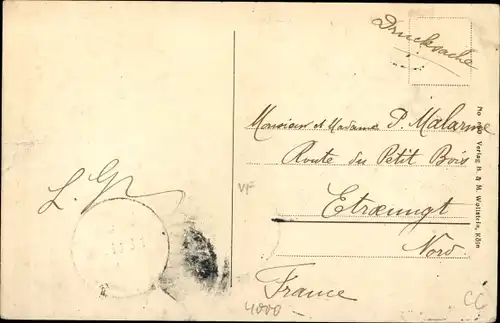 Drucksache
Monsieur et Madame P. Malarme
Route du Petit Bois
Etrœungt
Nord.
France
L. G
VF
4000 -
CC
Verlag H. & M. Wollstein, Köln